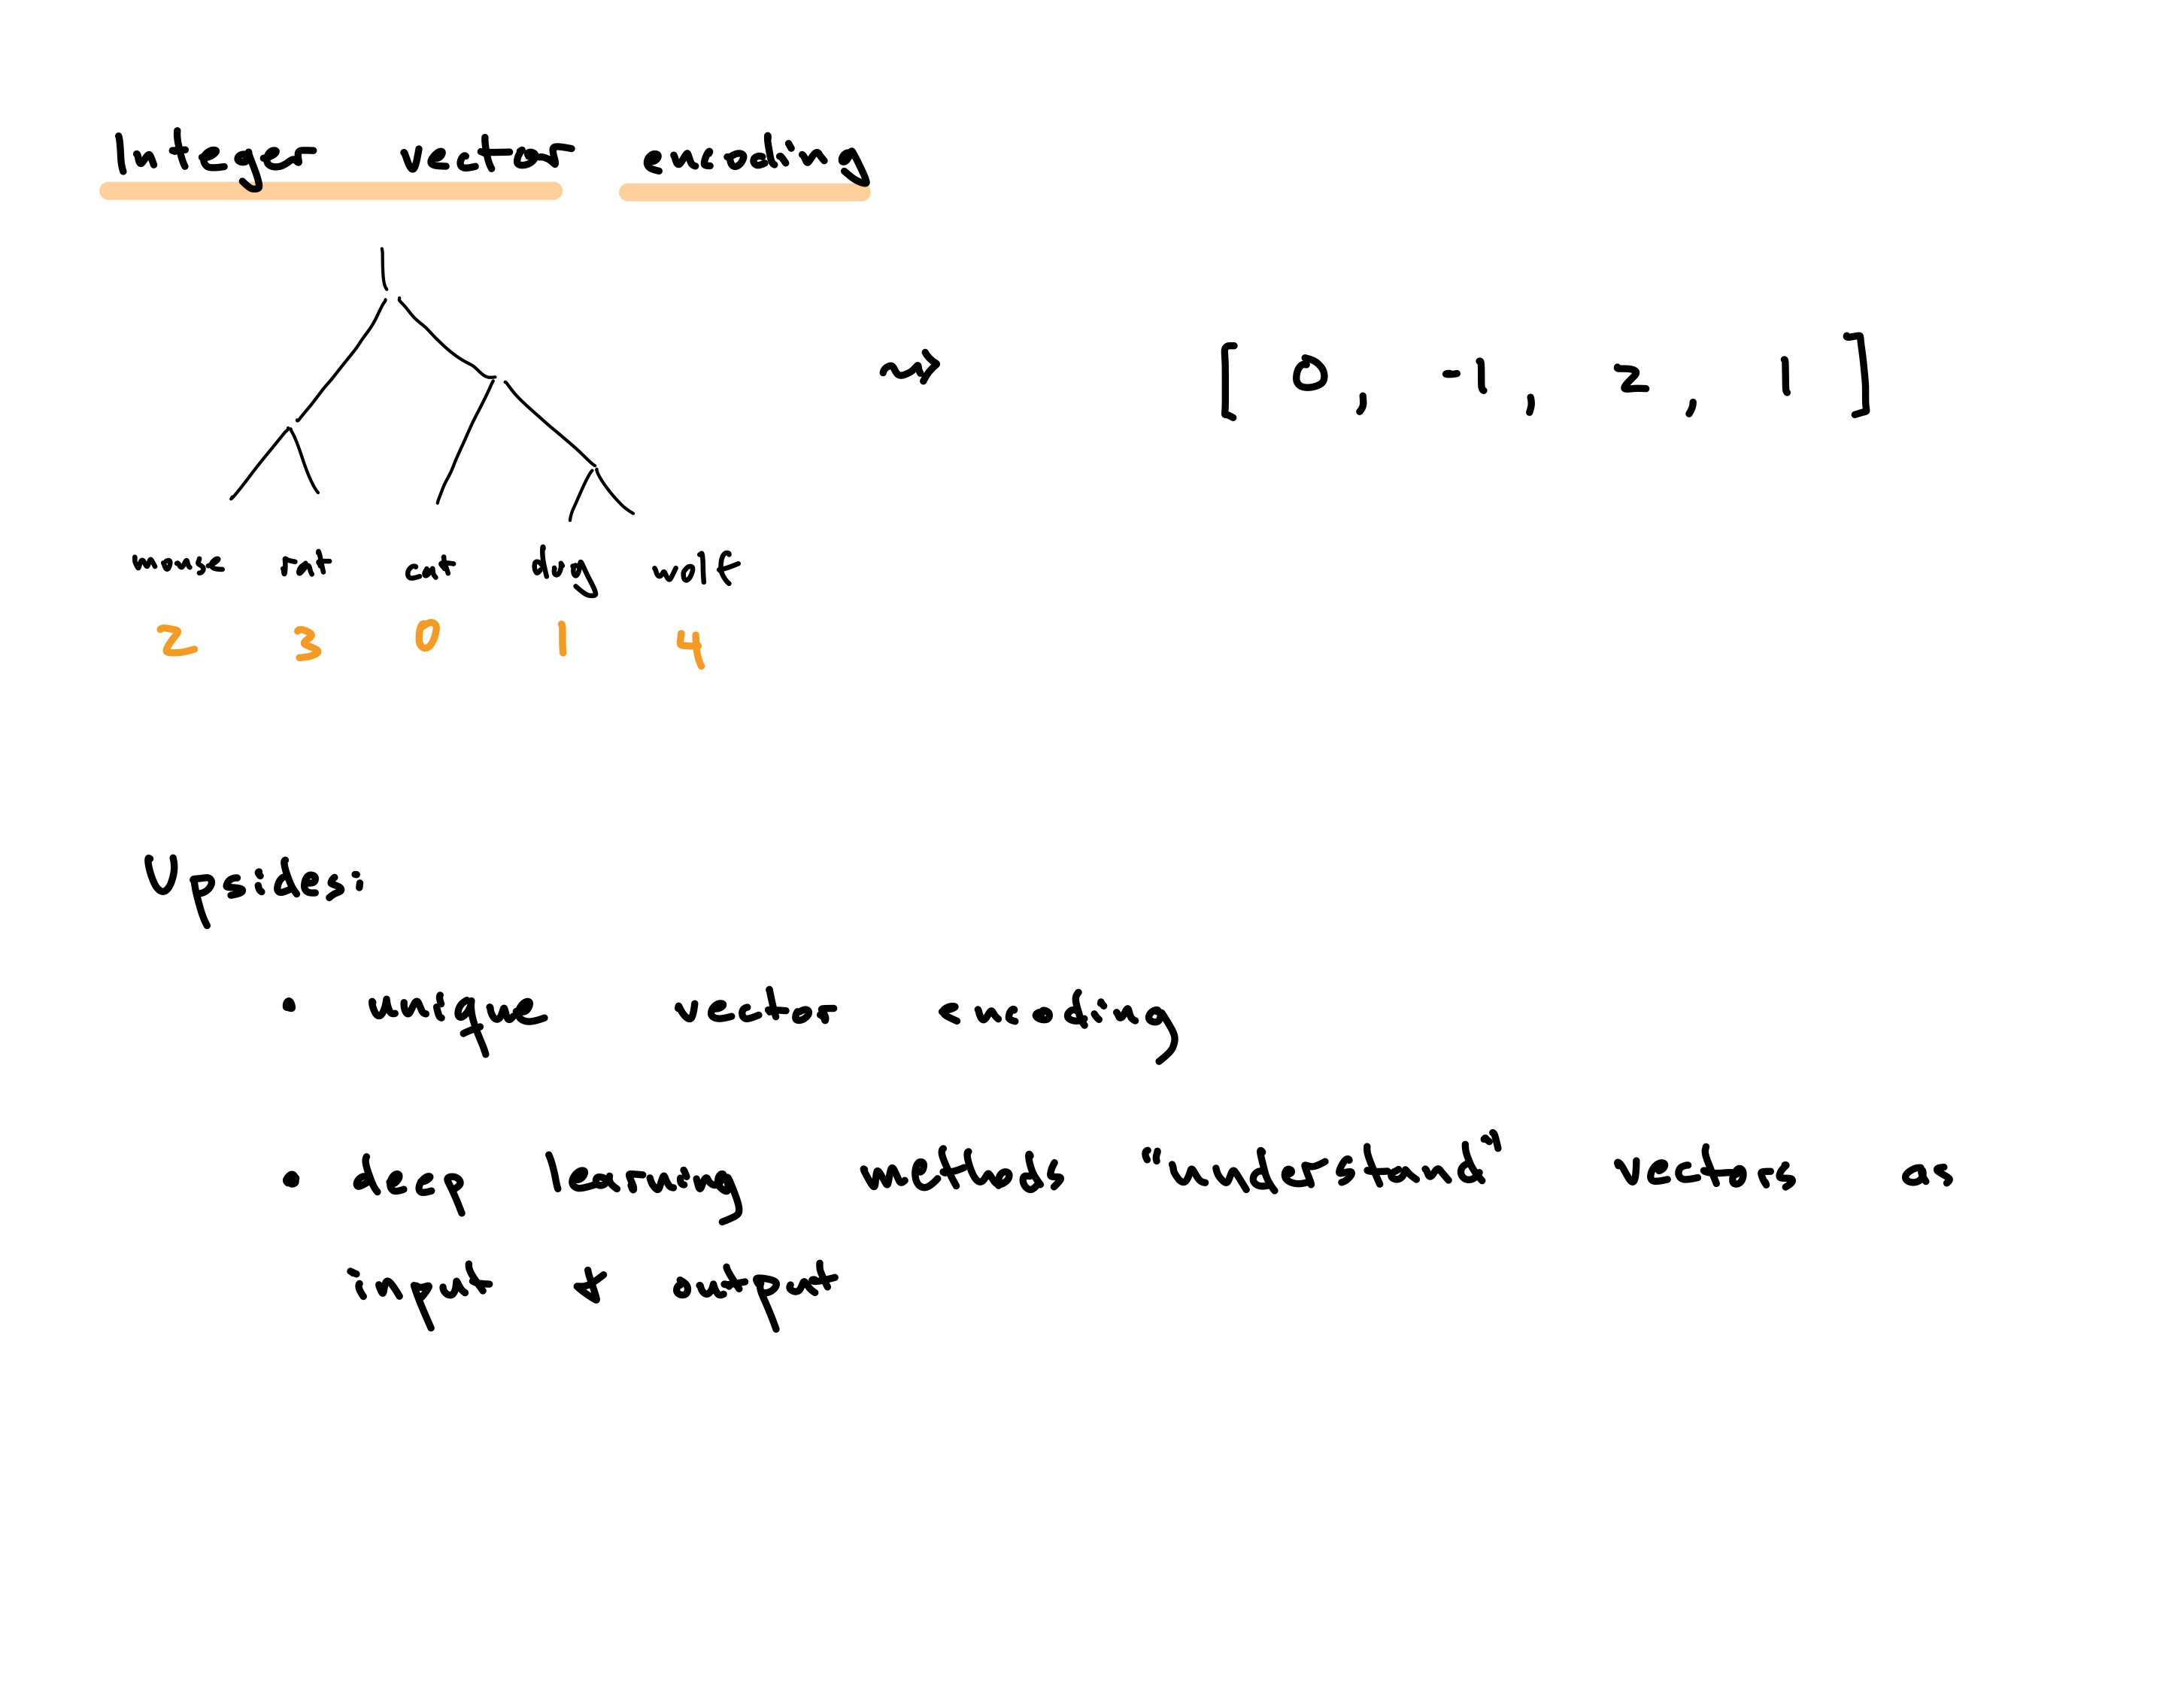 Integer vector encoding
[ 0, -1, 2, 1 ]
mouse rat cat dog wolf
2 3 0 1 4
Upsides:
• unique vector encoding
• deep learning methods "understand" vectors as
input & output